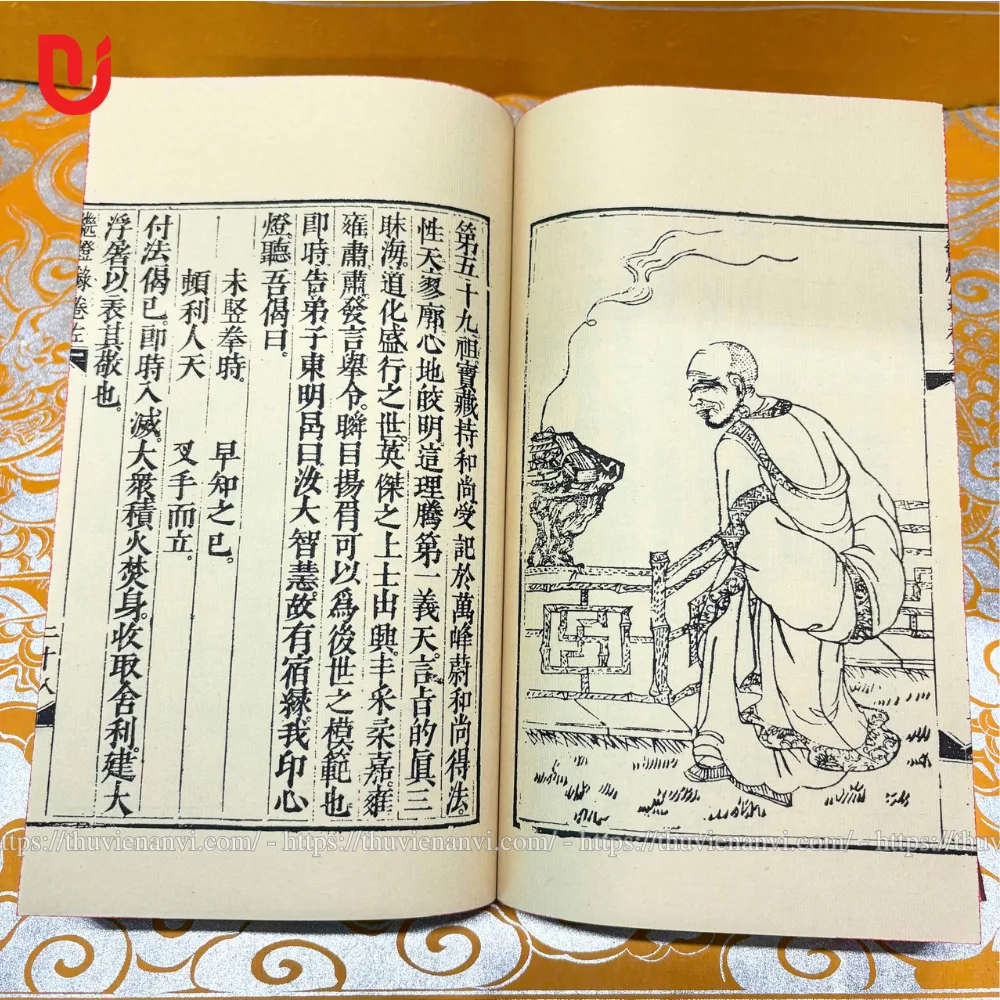 第五十九祖寶藏持和尚受記於萬峰蔚和尚得法。
性天寥廓心地皎明這理騰第一義天言旨的眞三
昧海。道化盛行之世英傑之上士出興。丰采柔嘉。雍
雍肅肅。發言舉令。瞬目揚眉可以爲後世之模範也。
即時告弟子東明昌曰汝大智慧。故有宿緣。我印心
燈聽吾偈曰。
未竪拳時。 早知之已。
頓利人天 叉手而立。
付法偈已。即時入滅。大衆積火焚身。收取舍利。建大
浮屠以表其敬也。
燈錄卷左
二十八
https://thuvienanvi.com/ - https://thuvienanvi.com/ - https://thuvienanvi.com/ - https://thuv